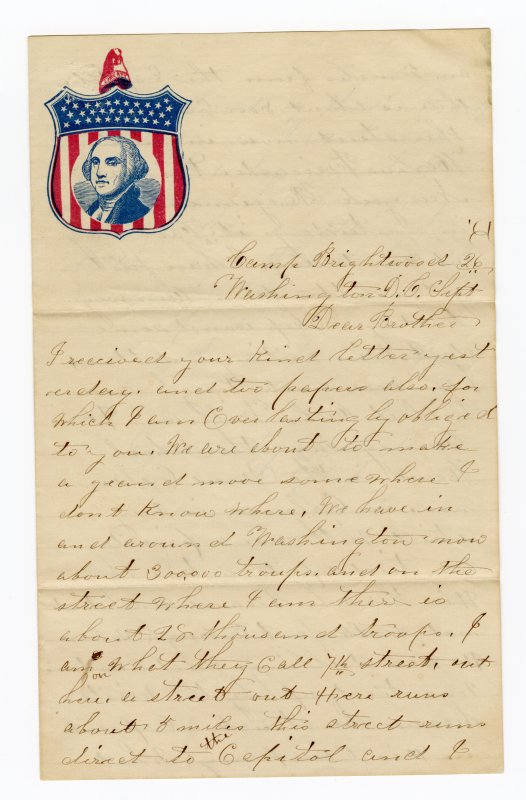 Camp Brightwood 26
Washington D.C. Sept
Dear Brother
I received your kind letter yest
erday. and two papers also. for
which I am Everlastingly obliged
to you. We are about to make
a grand move somewhere I
dont know where, We have in
and around Washington now
about 300,000 troups. and on the
street where I am ther is
about 20 thousand troops. I
am on what they Call 7th street, out
here a street out here runs
about 5 miles this street runs
direct to the Capitol and I